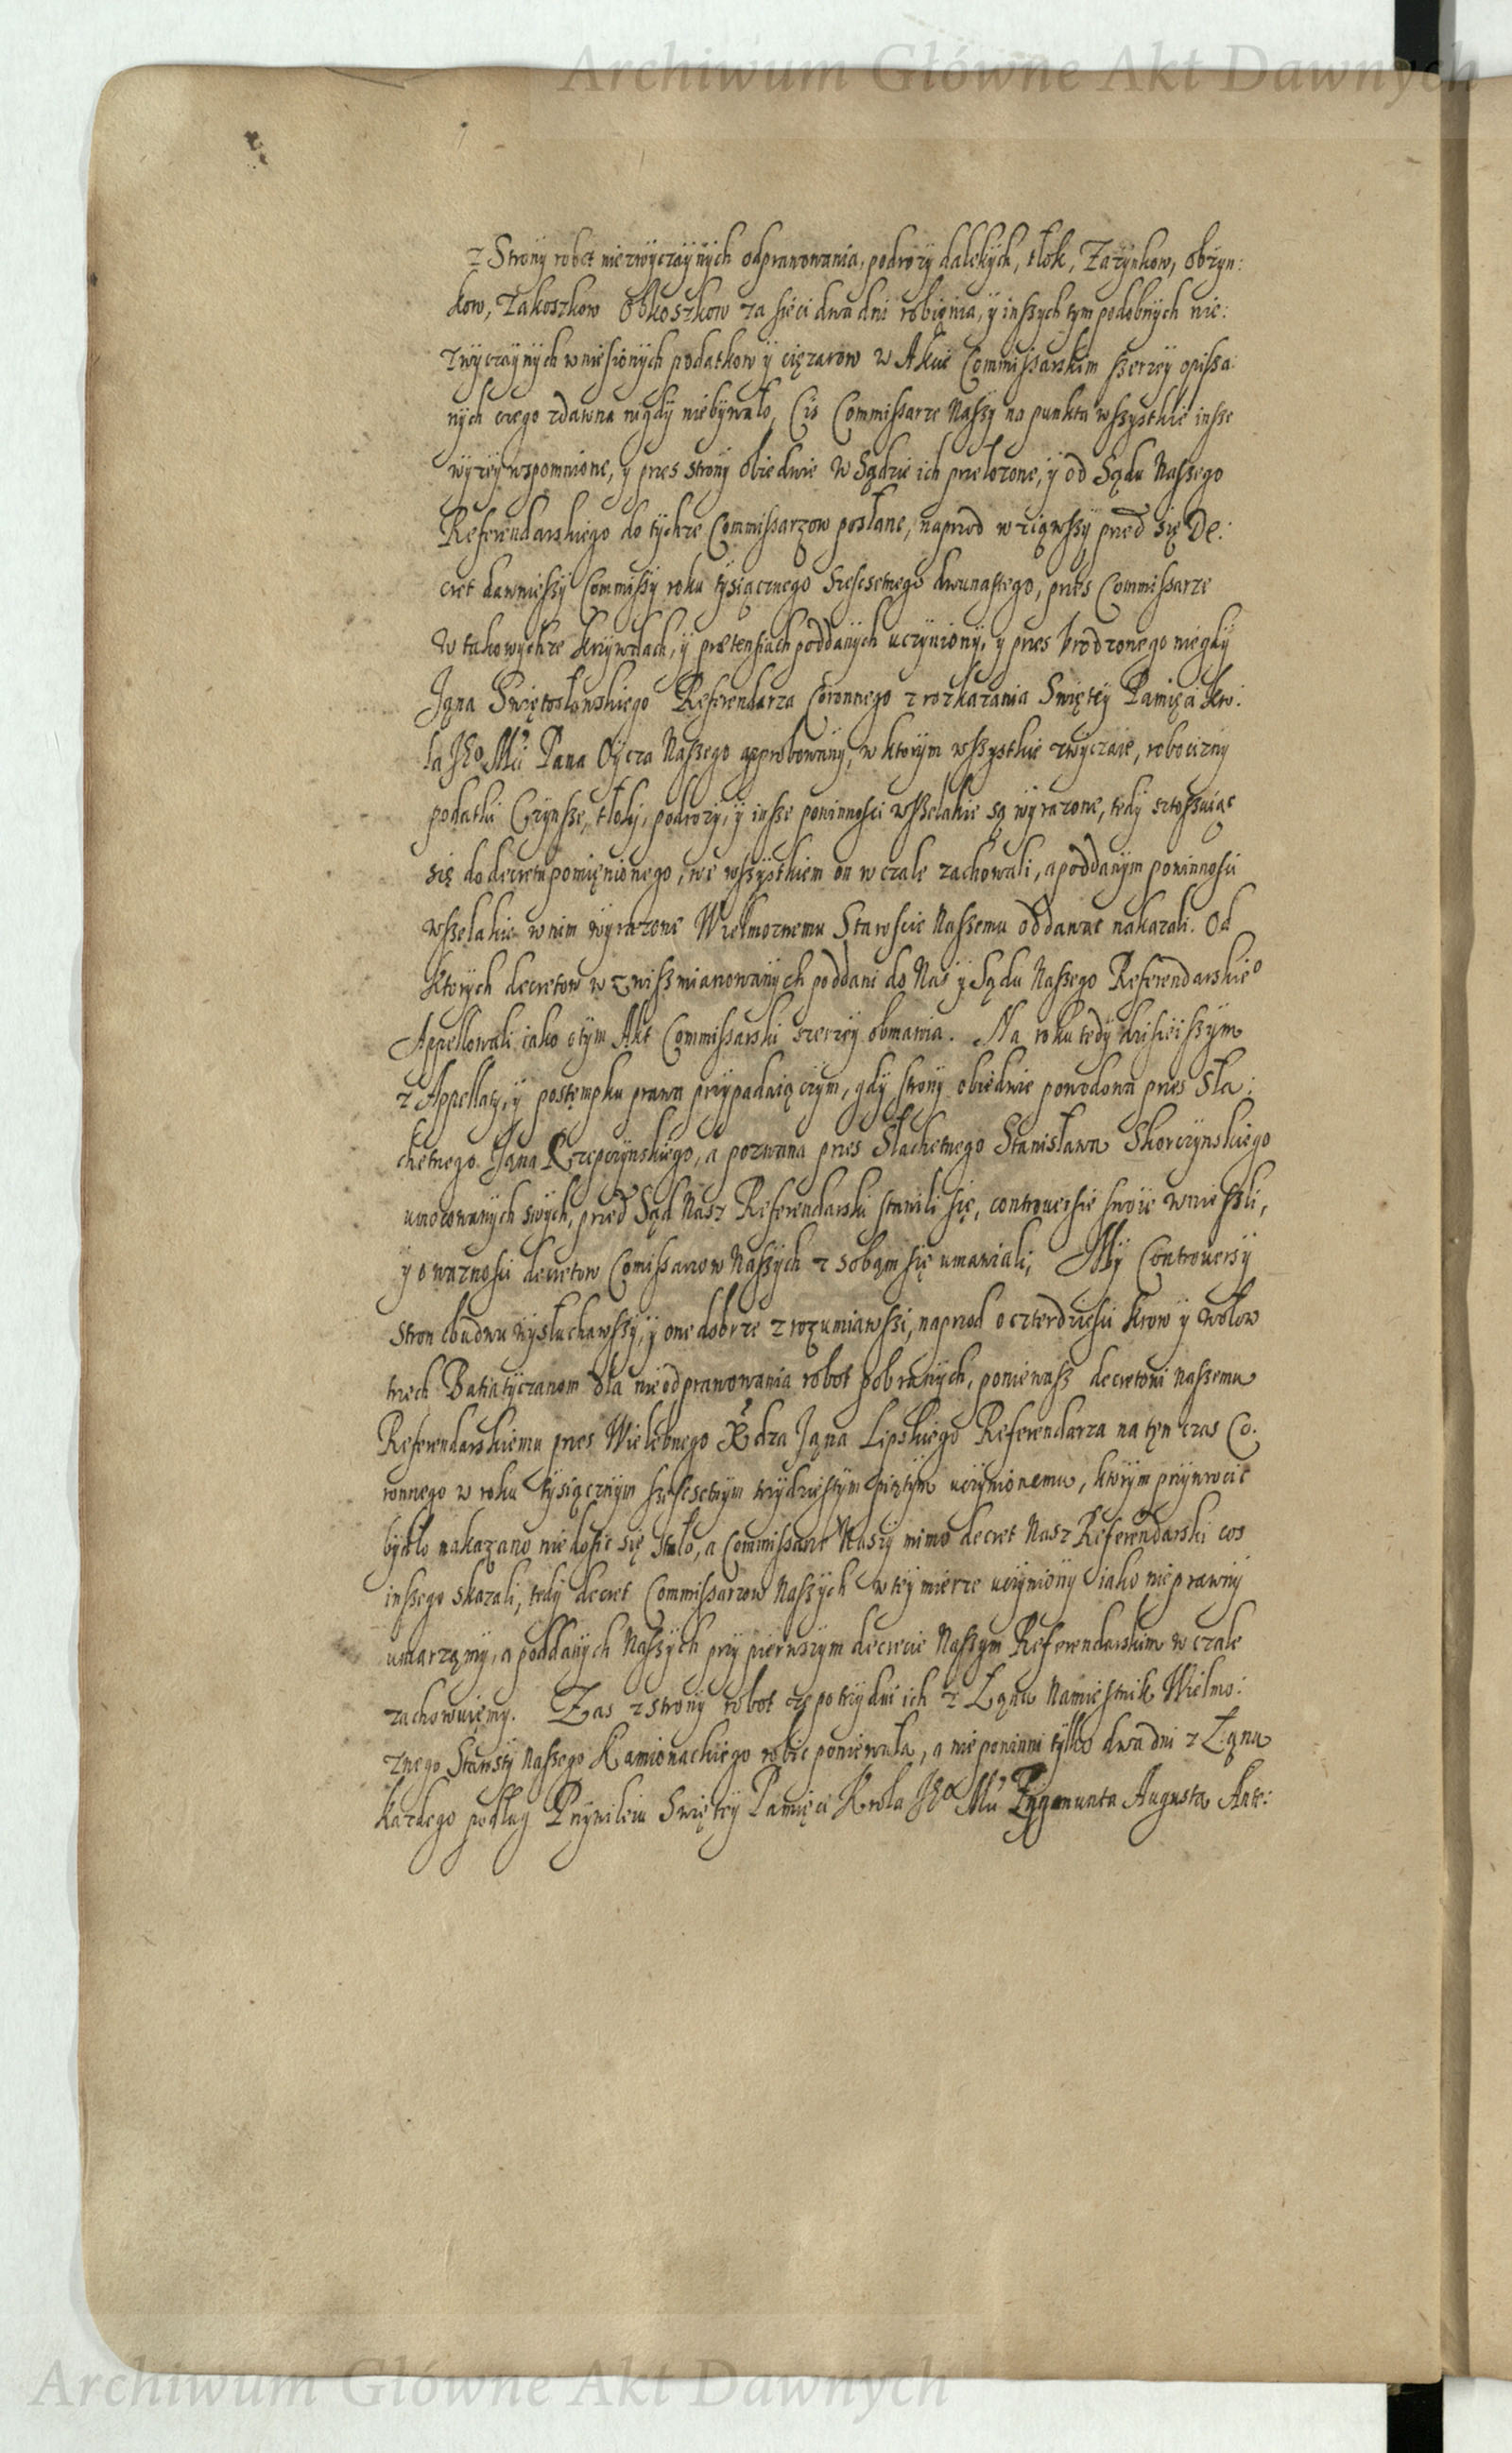 Archiwum Główne Akt Dawnych
z Strony robot niezwyczaynych odprawowania, podrozy dalekych, tłok, Zazynkow, obzyn:
kow, Zakoszkow Obkoszkow za sieci dwa dni robięnia, y inszych tym podobnych nie:
zwyczaynych wniesionych podatkow y cięzarow w Akcie Commissarskim szerzey opissa:
nych czego zdawna nigdy niebywało, Cis Commissarze Naszy na punkta wszystkie insze
wyzey wspomnione, y przes strony obiedwie w Sądzie ich przełozone, y od Sądu Naszego
Referendarskiego do tychze Commissarzow posłane, naprzod wziąwszy przed się De:
cret dawnieszy Commissy roku tysiącznego szescsetnego dwunastego, przes Commissarze
w takowychze krzywdach, y prætensiach poddanych uczyniony, y przes Vrodzonego niegdy
Jąna Swiętosławskiego Referendarza Coronnego z rozkazania Swiętey Pamięci Kro:
la Jho Mći Pana Oyca Naszego approbowany, w ktorym wszystkie zwyczaie, robocizny
podatki Czynsze, tłoky, podrozy, y insze powinnosci wszelakie są wyrazone, tedy stosuiąc
się do decretu pomięnionego, we wszystkiem on w czale zachowali, a poddanym powinnosci
wszelakie w nim wyrazone Wielmoznemu Staroscie Naszemu oddawac nakazali. Od
ktorych decretow wzwisz mianowanych poddani do Nas y Sądu Naszego Referendarskieo
Appellowali iako o tym Akt Commissarski szerzey obmawia. Na roku tedy dzisieiszym
z Appellaty, y postęmpku prawa przypadaiączym, gdy strony obiedwie powodowa przes Sla:
chetnego Jąna Rzepczynskiego, a pozwana przes Slachetnego Stanisława Skorczynskiego
umocowanych swych, przed Sąd Nasz Referendarski stawili się, controuersie swoie wniesli,
y o waznosci decretow Comissarzow Naszych z sobąm się umawiali, My Controuersy
stron obudwu wysłuchawszy, y one dobrze zrozumiawszi, naprzod o czterdziesci krow y wołow
trzech Batiatyczanom dla nieodprawowania robot pobranych, poniewasz decretowi naszemu
Referendarskiemu przes Wielebnego Xdza Jąna Lipskiego Referendarza na tęn czas Co:
ronnego w roku tysiącznym szescsetnym trzydziestym piątym uczynionemu, ktorym przywrocic
bydło nakazano niedosic się stało, a Commissarze Naszy mimo decret Nasz Referendarski cos
inszego skazali, tedy decret Commissarzow Naszych w tey mierze uczyniony iako nieprawny
umarzamy, a poddanych Naszych przy pierwszym decrecie Naszym Referendarskim w czale
zachowuięmy. Zas z strony robot ze po trzy dni ich z Łąnu Namiestnik Wielmo:
znego Starosty Naszego Kamionackiego robic poniewala, a nie powinni tylko dwa dni z Łąnu
kazdego podług Przywileiu Swiętey Pamięci Krola Jho Mći Zygmunta Augusta Ante:
Archiwum Główne Akt Dawnych